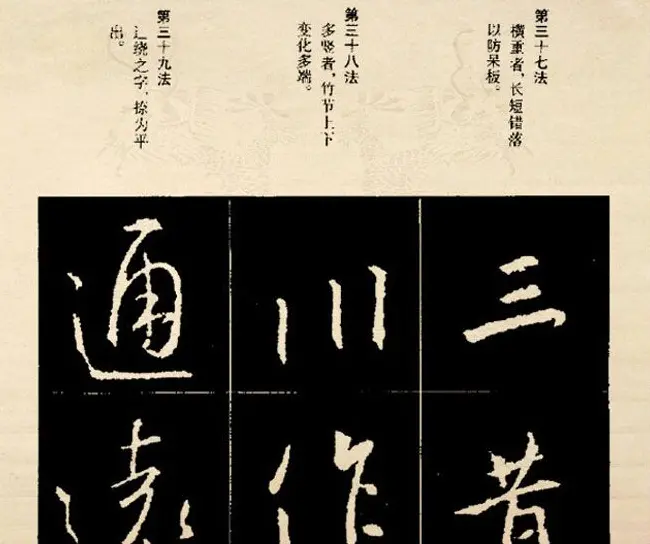 第三十七法
横重者，长短错落
以防呆板。
第三十八法
多竖者，竹节上下
变化多端。
第三十九法
辶绕之字，捺为平
出。
三
昔
川
作
通
遠